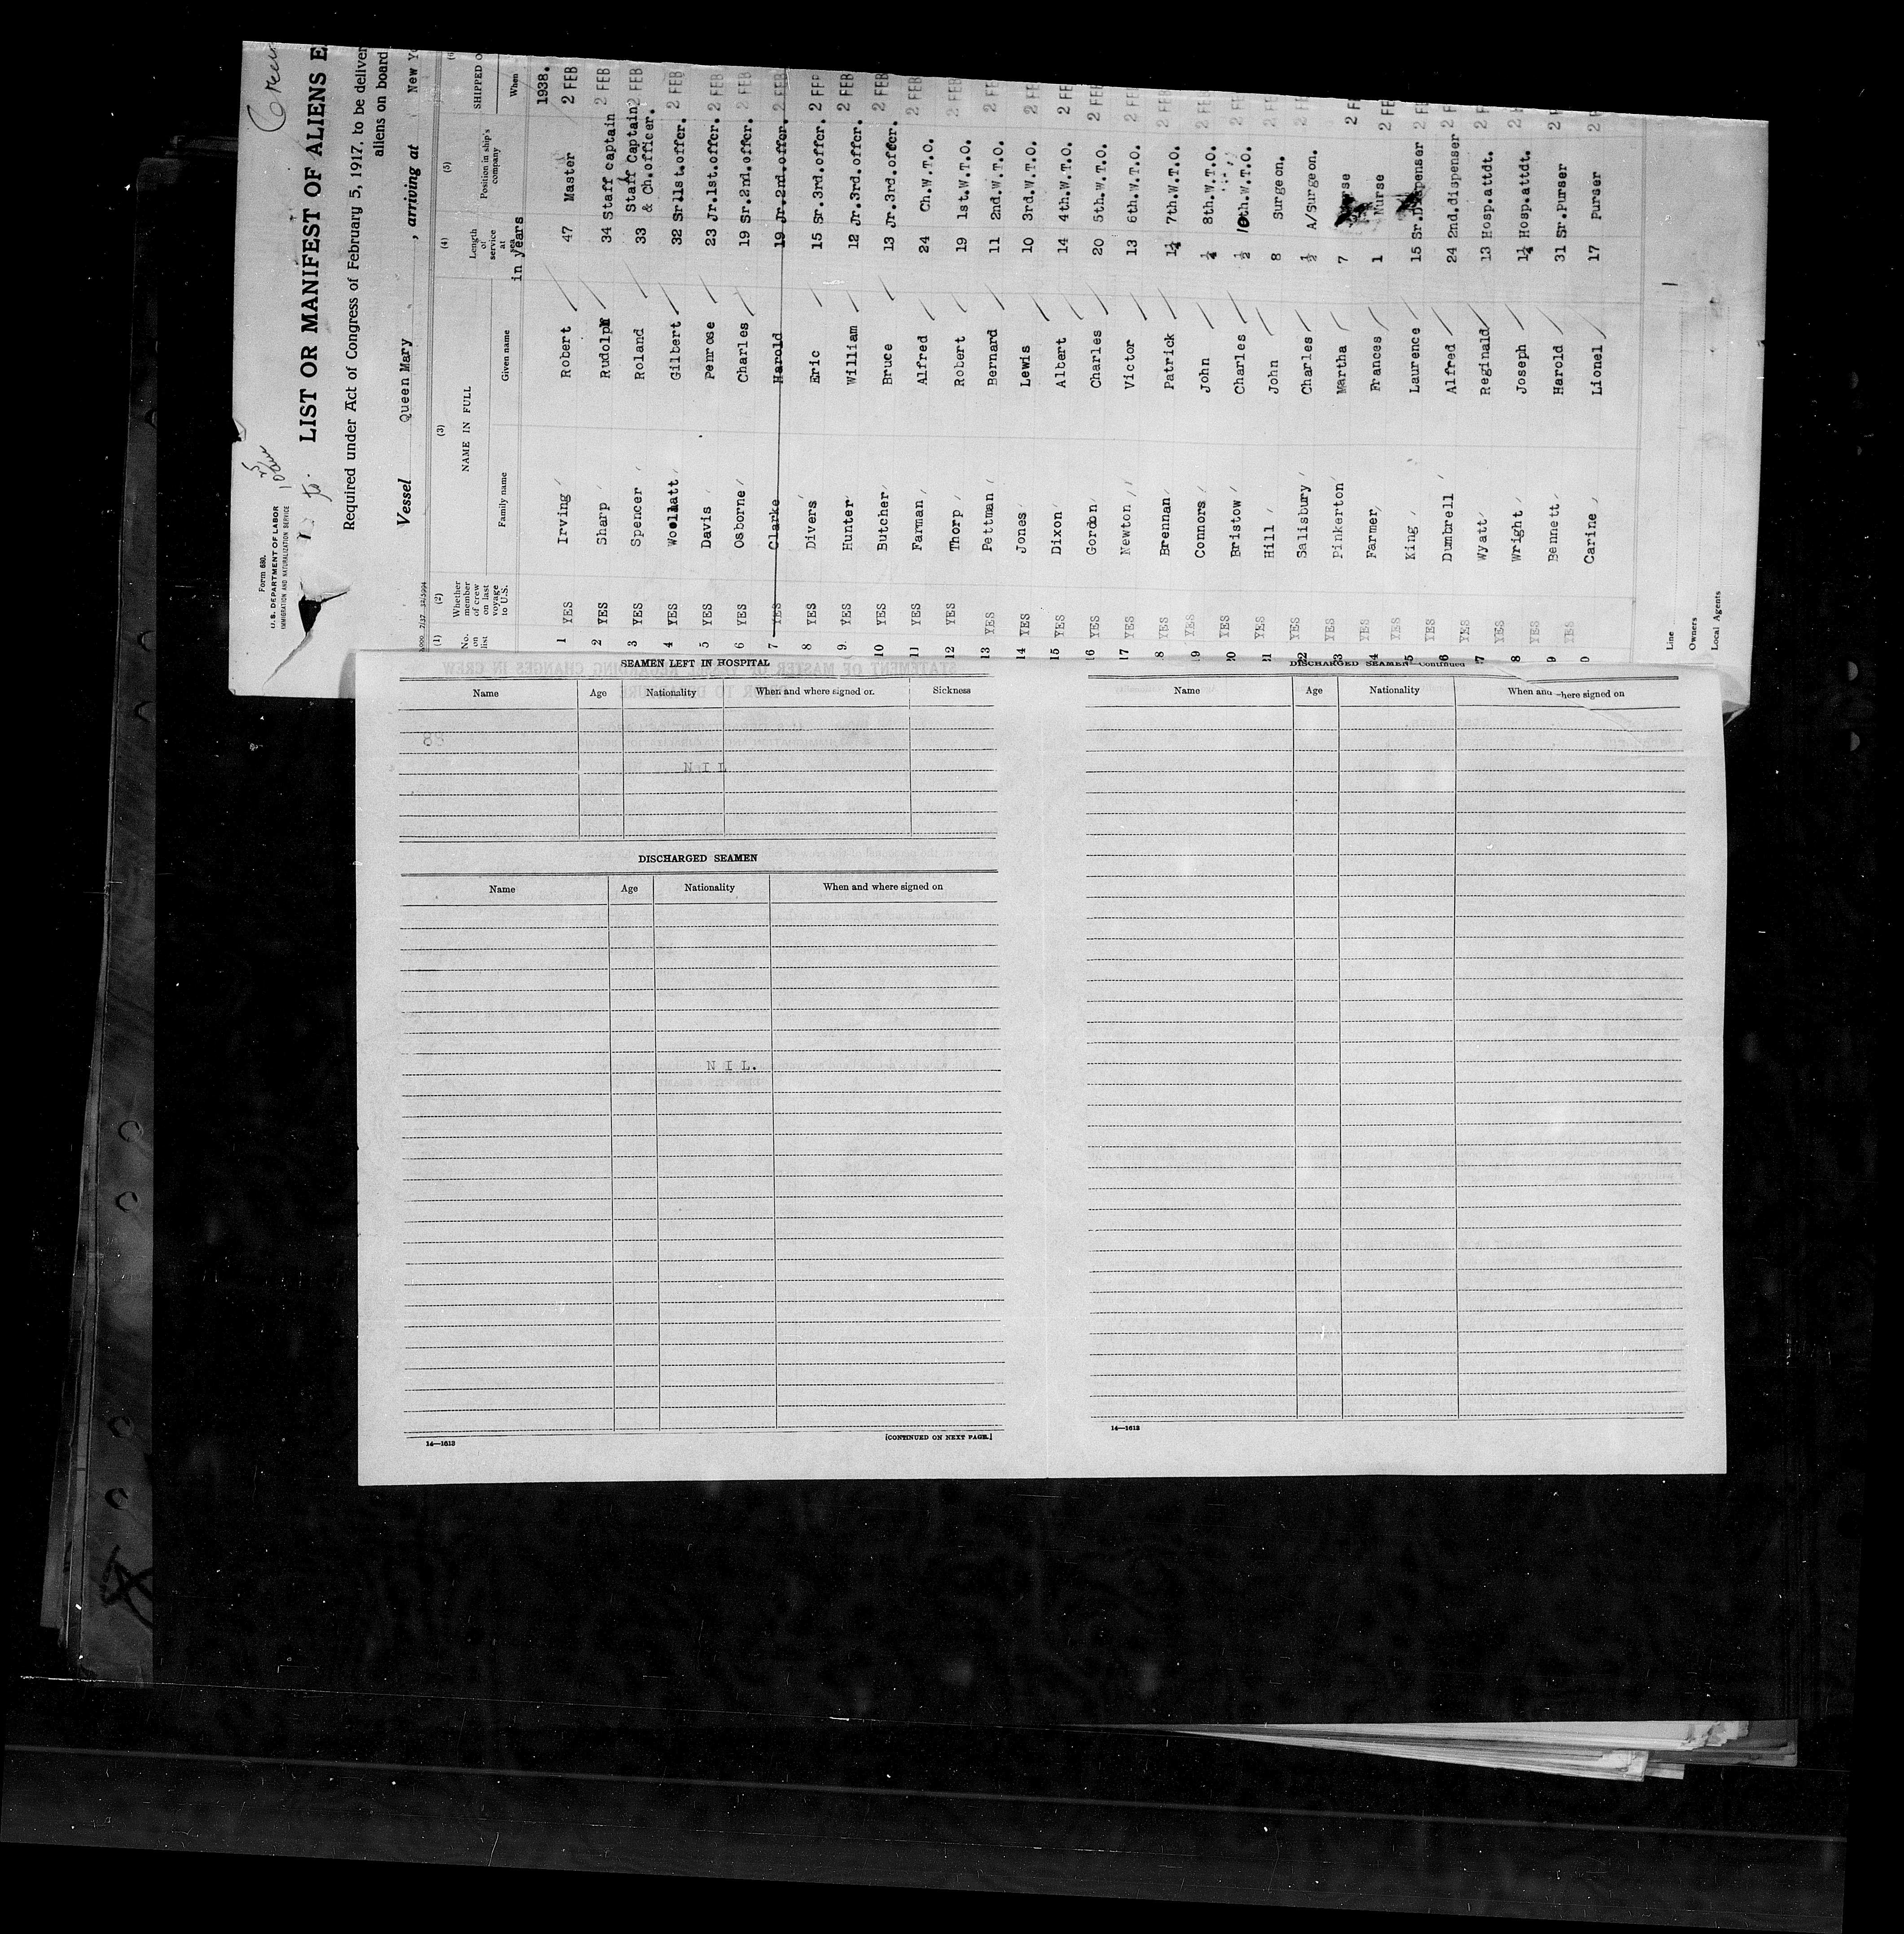 Form 680.
U.S. DEPARTMENT OF LABOR
IMMIGRATION AND NATURALIZATION SERVICE
Crew
LIST OR MANIFEST OF ALIENS E
Required under Act of Congress of February 5, 1917, to be deliver
aliens on board
Vessel Queen Mary , arriving at New Yo
(1) (2) (3) (4) (5) (6
No. on list Whether member of crew on last voyage to U.S. NAME IN FULL Length of service at sea Position in ship's company SHIPPED O
Family name Given name in years When
1938.
1 YES Irving Robert 47 Master 2 FEB
2 YES Sharp Rudolph 34 Staff captain 2 FEB
3 YES Spencer Roland 33 Staff Captain 2 FEB
& Ch.officer.
4 YES Woollatt Gilbert 32 Sr1st.offcr. 2 FEB
5 YES Davis Penrose 23 Jr.1st.offcr. 2 FEB
6 YES Osborne Charles 19 Sr.2nd.offcr. 2 FEB
7 YES Clarke Harold 19 Jr.2nd.offcr. 2 FEB
8 YES Divers Eric 15 Sr.3rd.offcr. 2 FEB
9 YES Hunter William 12 Jr.3rd.offcr. 2 FEB
10 YES Butcher Bruce 13 Jr.3rd.offcer. 2 FEB
11 YES Farman Alfred 24 Ch.W.T.O. 2 FEB
12 YES Thorp Robert 19 1st.W.T.O. 2 FEB
13 YES Pettman Bernard 11 2nd.W.T.O. 2 FEB
14 YES Jones Lewis 10 3rd.W.T.O. 2 FEB
15 YES Dixon Albert 14 4th.W.T.O. 2 FEB
16 YES Gordon Charles 20 5th.W.T.O. 2 FEB
17 YES Newton Victor 13 6th.W.T.O. 2 FEB
8 YES Brennan Patrick 1¼ 7th.W.T.O. 2 FEB
19 YES Connors John ¼ 8th.W.T.O. 2 FEB
20 YES Bristow Charles ½ 10th.W.T.O. 2 FEB
21 YES Hill John 8 Surgeon. 2 FEB
22 YES Salisbury Charles ½ A/Surgeon. 2 FEB
3 YES Pinkerton Martha 7 Nurse 2 F
4 YES Farmer Frances 1 Nurse 2 FE
5 YES King Laurence 15 Sr.Dispenser 2 FE
6 YES Dumbrell Alfred 24 2nd.dispenser 2 F
7 YES Wyatt Reginald 13 Hosp.attdt. 2 F
8 YES Wright Joseph 1¼ Hosp.attdt. 2 F
9 YES Bennett Harold 31 Sr.Purser 2 F
0 YES Carine Lionel 17 Purser 2 F
Line
Owners
Local Agents
SEAMEN LEFT IN HOSPITAL
Name Age Nationality When and where signed on Sickness
N I L
DISCHARGED SEAMEN
Name Age Nationality When and where signed on
N I L.
14—1613
[CONTINUED ON NEXT PAGE.]
DISCHARGED SEAMEN—Continued
Name Age Nationality When and where signed on
14—1613